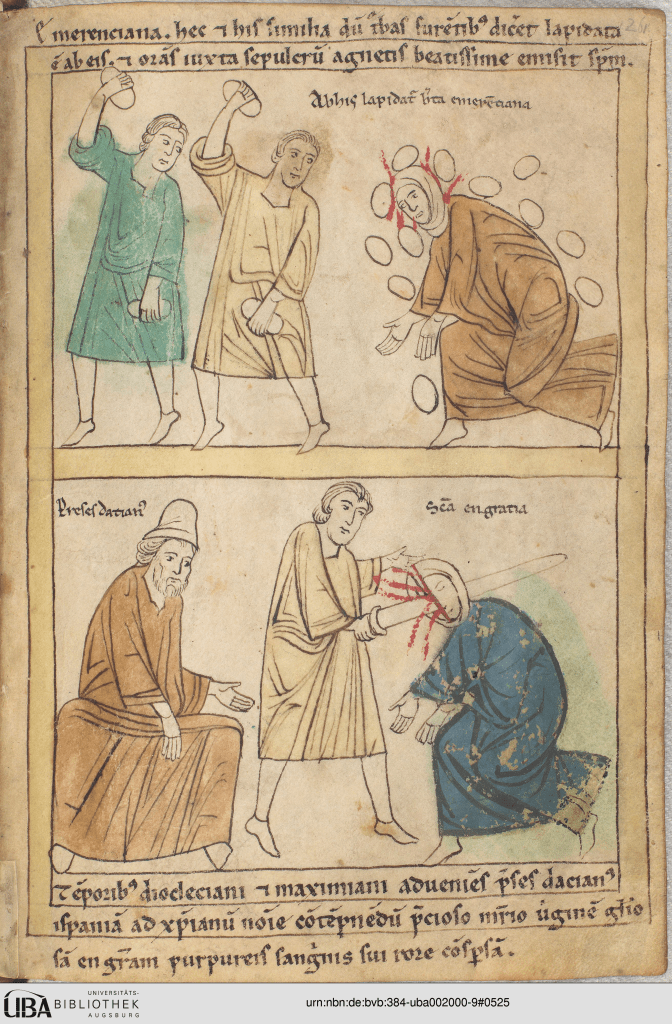 merenciana. hec ⁊ his similia dū t̄bas furētibꝰ dicet lapidata
ē ab eis. ⁊ orās iuxta sepulcrū agnetis beatissime emisit sp̄m.
Ab his lapidat̄ b̄ta emerēciana
Preses datianꝰ
Sc̄a engratia
Tēporibꝰ diocleciani ⁊ maximiani adueniēs p̄ses dacianꝰ
ispaniā ad xp̄ianū noīe cōtēpnēdū p̄cioso mr̄io ūginē gl̄io
sā engr̄am purpureis sangīnis sui rore cōsp̄sā.
UBA
UNIVERSITÄTS-
BIBLIOTHEK
AUGSBURG
urn:nbn:de:bvb:384-uba002000-9#0525